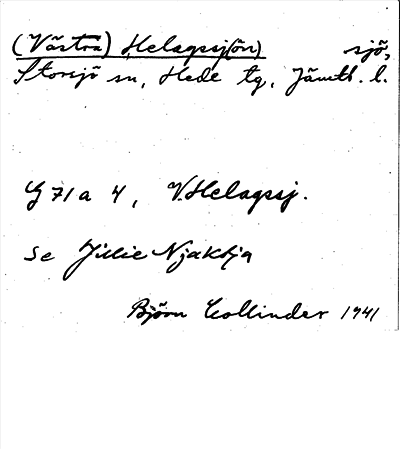 (Västra) Helagssj(ön) sjö,
Storsjö sn, Hede tg, Jämtl. l.
G 71 a 4, V. Helagssj.
Se Jïllie Njaktja
Björn Collinder 1941